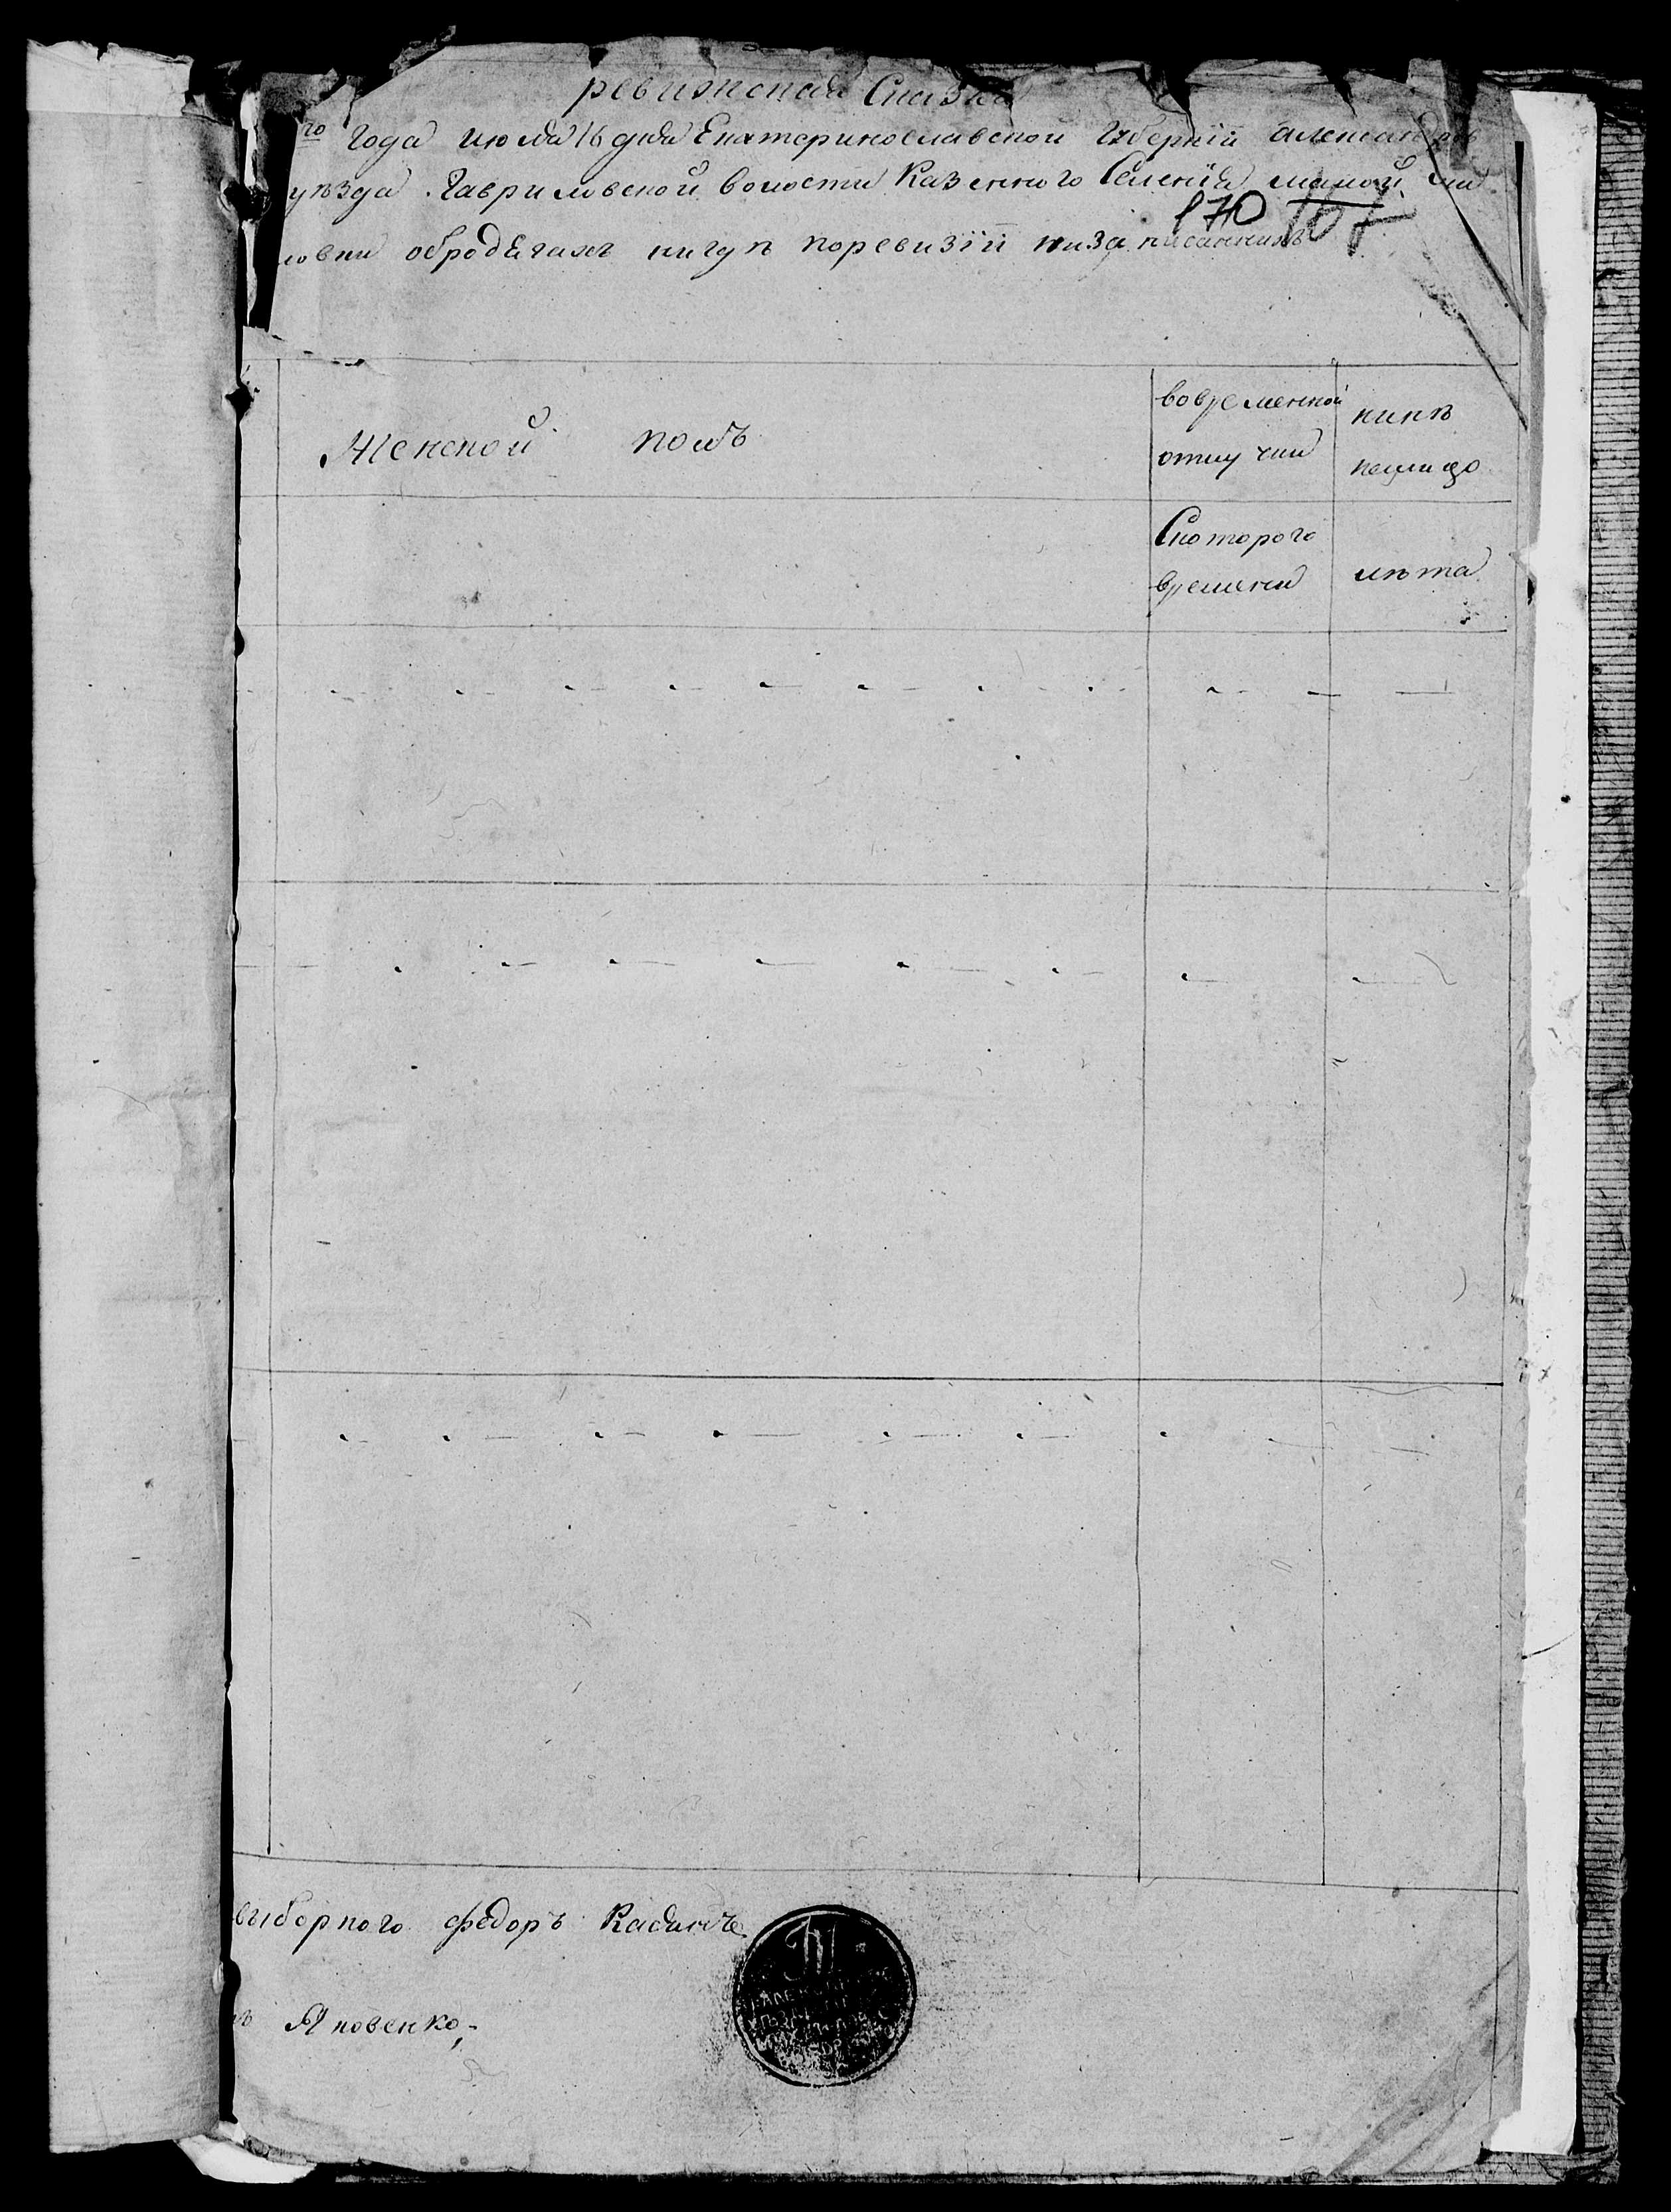 ревижская Сказка
го года июля 16 дня Екатеринославской Губернїй александров
уѣзда Гавриловской волости Казенного Селенїя малой ми
170 167
ловки обродягахъ нигдѣ поревизїй низаписаннихъ
Женской полъ
вовременной
отлучки
нинѣ
налицо
Скоторого
времени
лѣта
выборного федоръ
ъ Яковенко,